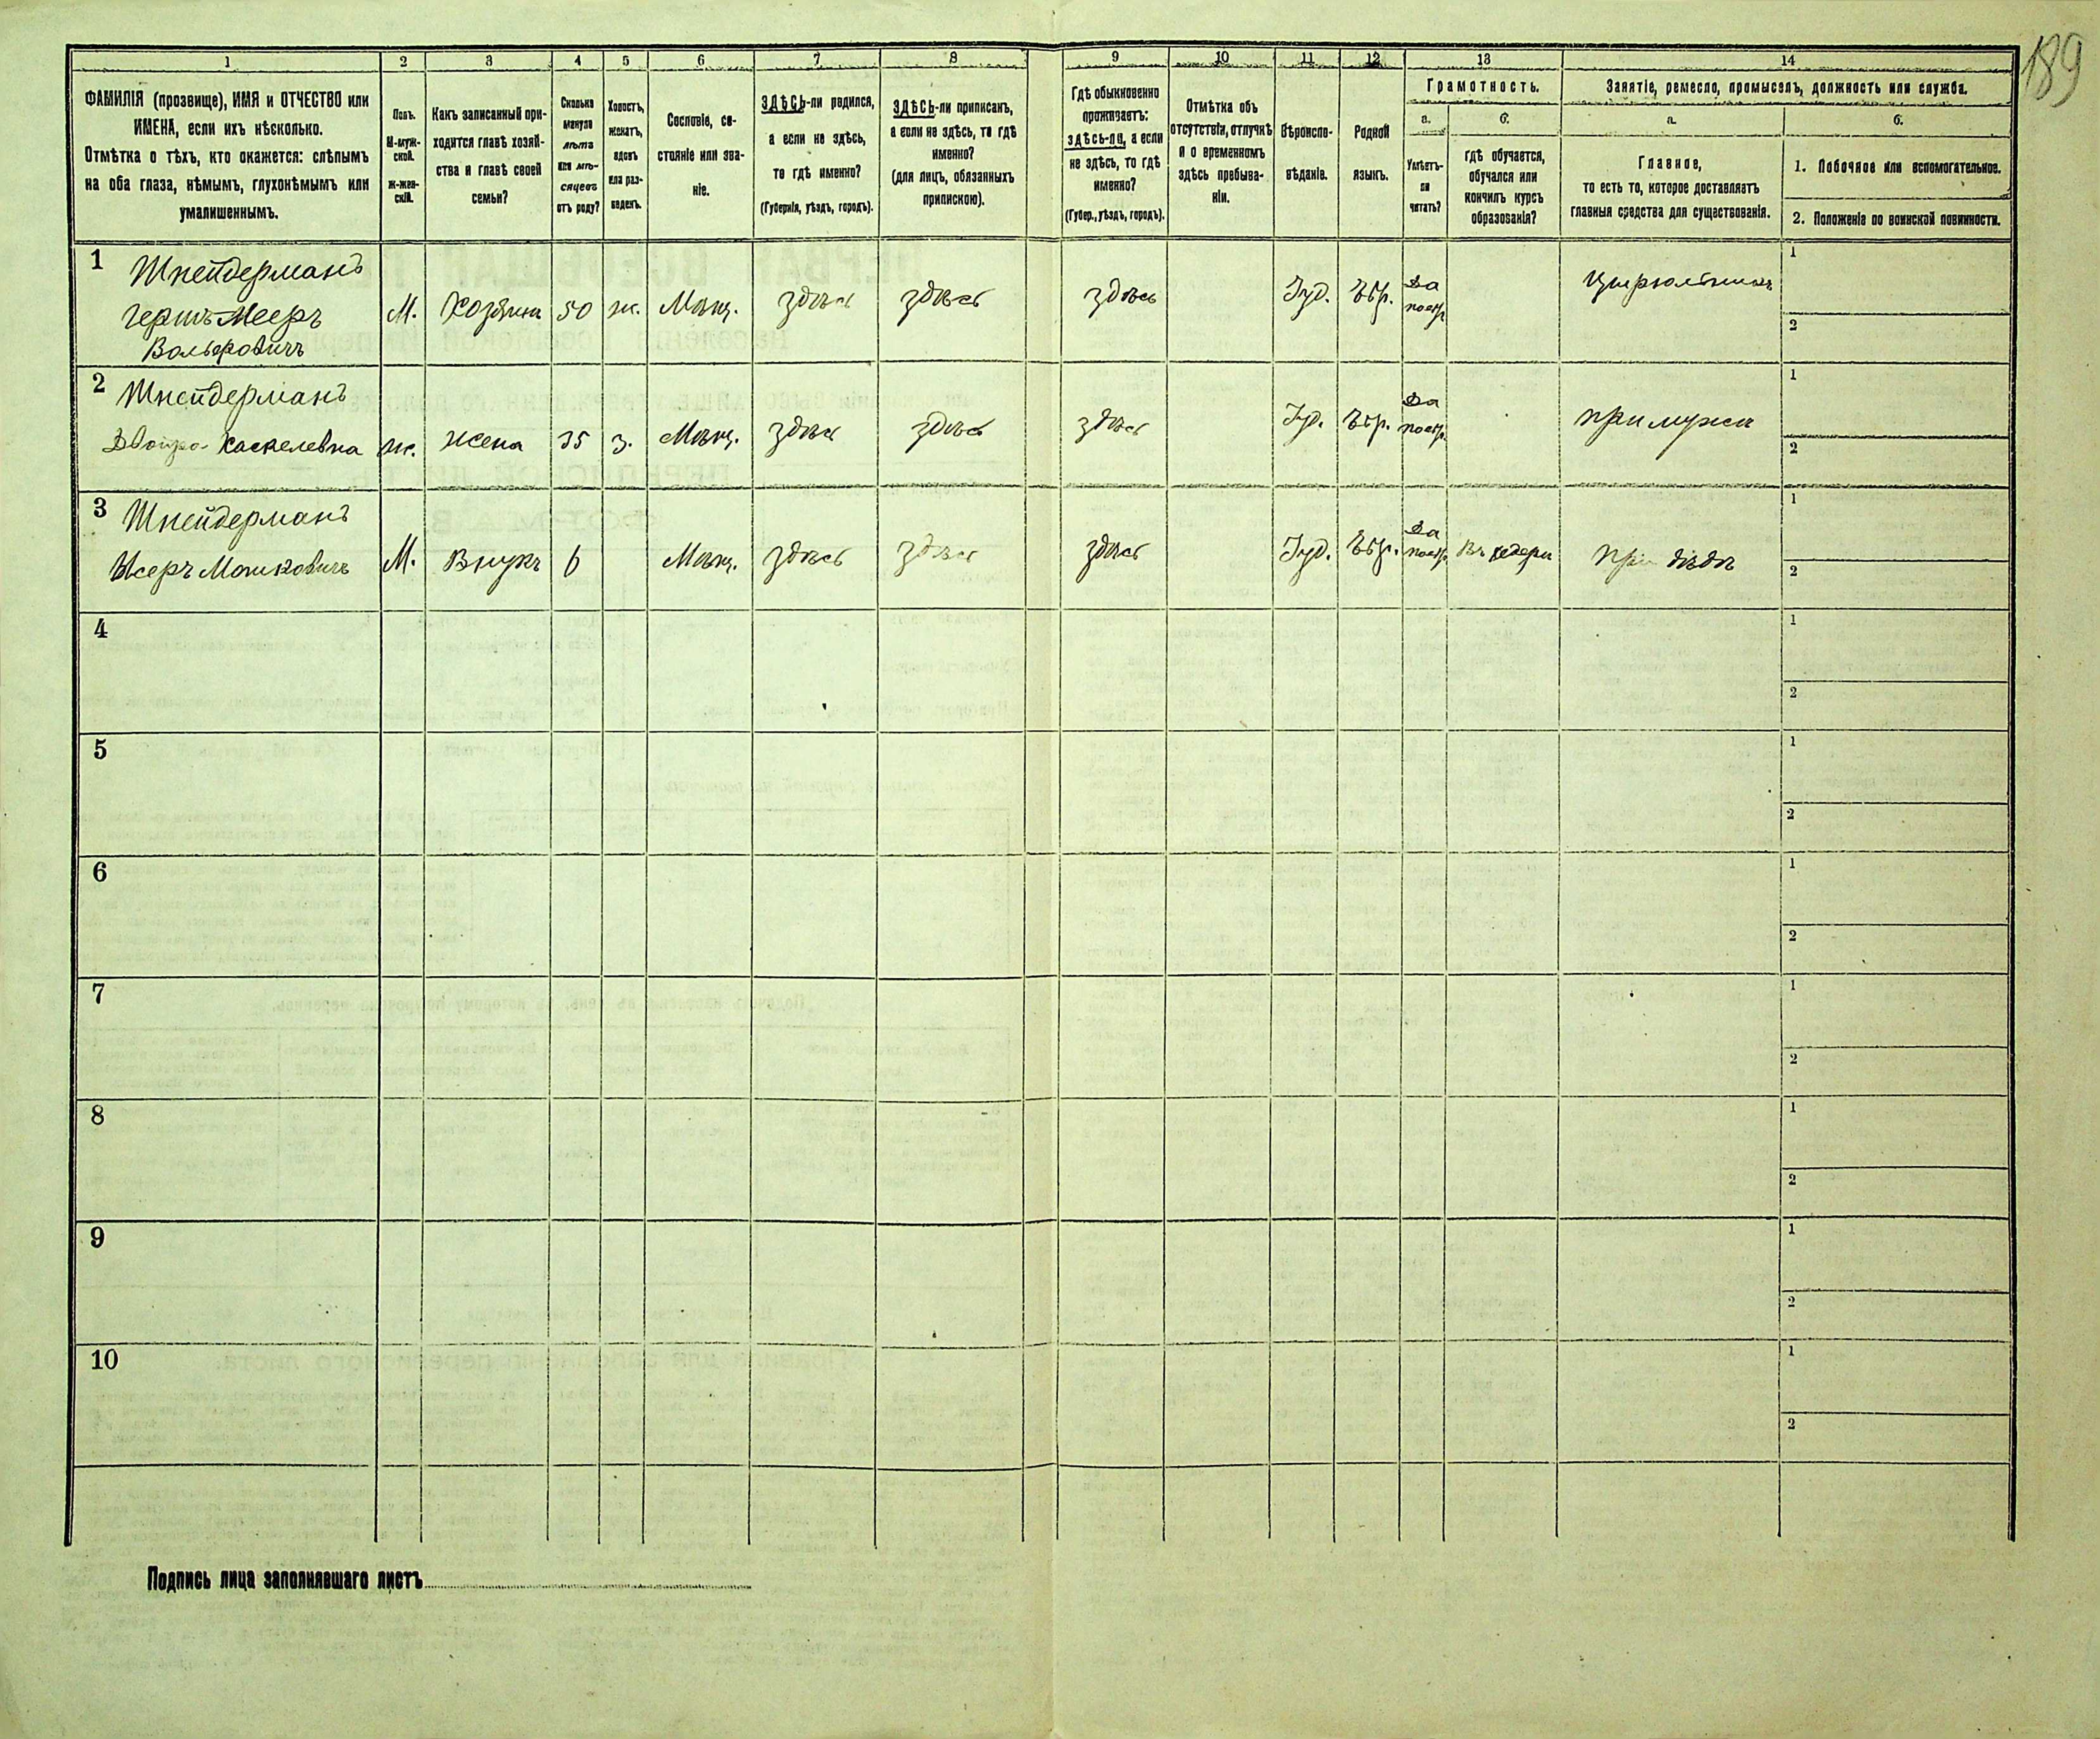 189
1 2 3 4 5 6 7 8 9 10 11 12 13 14
ФАМИЛІЯ (прозвище), ИМЯ и ОТЧЕСТВО или
ИМЕНА, если ихъ нѣсколько.
Отмѣтка о тѣхъ, кто окажется: слѣпымъ
на оба глаза, нѣмымъ, глухонѣмымъ или
умалишеннымъ.
Полъ.
М-муж-
ской.
Ж-жен-
скій.
Какъ записанный при-
ходится главѣ хозяй-
ства и главѣ своей
семьи?
Сколько
минуло
лѣтъ
или мѣ-
сяцевъ
отъ роду?
Холостъ,
женатъ,
вдовъ
или раз-
веденъ.
Сословіе, со-
стояніе или зва-
ніе.
ЗДѢСЬ-ли родился,
а если не здѣсь,
то гдѣ именно?
(Губернія, уѣздъ, городъ).
ЗДѢСЬ-ли приписанъ,
а если не здѣсь, то гдѣ
именно?
(для лицъ, обязанныхъ
припискою).
Гдѣ обыкновенно
проживаетъ:
здѣсь-ли, а если
не здѣсь, то гдѣ
именно?
(Губер., уѣздъ, городъ).
Отмѣтка объ
отсутствіи, отлучкѣ
и о временномъ
здѣсь пребыва-
ніи.
Вѣроиспо-
вѣданіе.
Родной
языкъ.
Грамотность.
а.
Умѣетъ-
ли
читать?
б.
гдѣ обучается,
обучался или
кончилъ курсъ
образованія?
Занятіе, ремесло, промыселъ, должность или служба.
а.
Главное,
то есть то, которое доставляетъ
главныя средства для существованія.
б.
1. Побочное или вспомогательное.
2. Положеніе по воинской повинности.
1 Шнейдерманъ
Гершъ-Мееръ
Вольфовичъ
М. Хозяинъ 50 ж. Мѣщ. здѣсь здѣсь здѣсь Іуд. Евр. Да
поевр.
Цирюльникъ
1
2
2 Шнейдерманъ
Двойра Хаскелевна ж. жена 35 з. Мѣщ. здѣсь здѣсь здѣсь Іуд. Евр. Да
поевр.
при мужѣ
1
2
3 Шнейдерманъ
Исеръ Мошковичъ М. Внукъ 6 Мѣщ. здѣсь здѣсь здѣсь Іуд. Евр. Да
поевр. Въ хедерѣ при дѣдѣ
1
2
4
1
2
5
1
2
6
1
2
7
1
2
8
1
2
9
1
2
10
1
2
Подпись лица заполнявшаго листъ